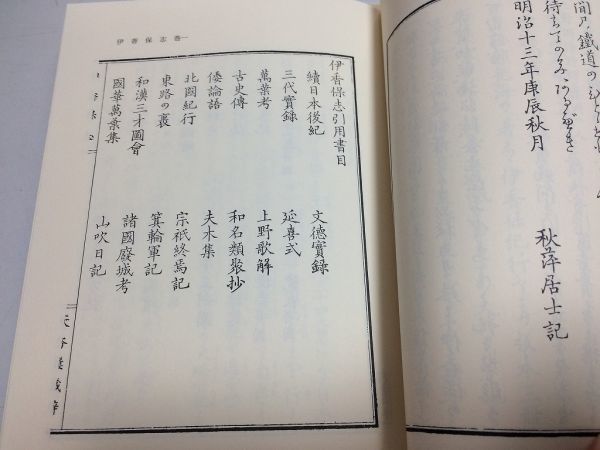 間ノ鐵道の
待ちての
明治十三年庚辰秋月
秋萍居士記
伊香保志巻一
伊香保志引用書目
續日本後紀 文德實録
三代實録 延喜式
萬葉考 上野歌解
古史傳 和名類聚抄
倭論語 夫木集
北國紀行 宗祇終焉記
東路の裏 箕輪軍記
和漢三才圖會 諸國廢城考
國華萬葉集 山吹日記